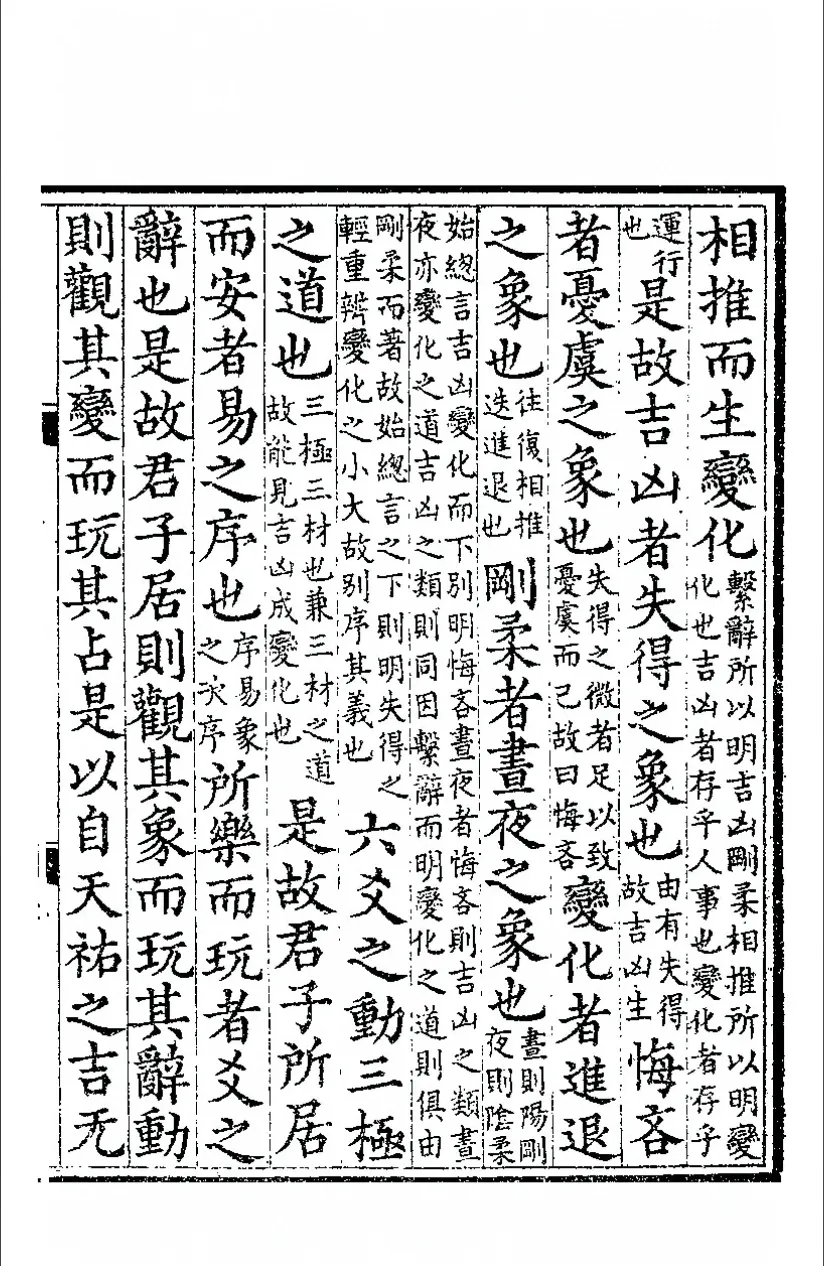 相推而生變化繫辭所以明吉凶剛柔相推所以明變化也吉凶者存乎人事也變化者存乎
運行也是故吉凶者失得之象也由有失得故吉凶生悔吝
者憂虞之象也失得之微者足以致憂虞而已故曰悔吝變化者進退
之象也往復相推迭進退也剛柔者晝夜之象也晝則陽剛夜則陰柔
始總言吉凶變化而下別明悔吝晝夜者悔吝則吉凶之類晝夜亦變化之道吉凶之類則同因繫辭而明變化之道則俱由
剛柔而著故始總言之下則明失得之輕重辨變化之小大故別序其義也六爻之動三極
之道也三極三材也兼三材之道故能見吉凶成變化也是故君子所居
而安者易之序也序易象之次序所樂而玩者爻之
辭也是故君子居則觀其象而玩其辭動
則觀其變而玩其占是以自天祐之吉无